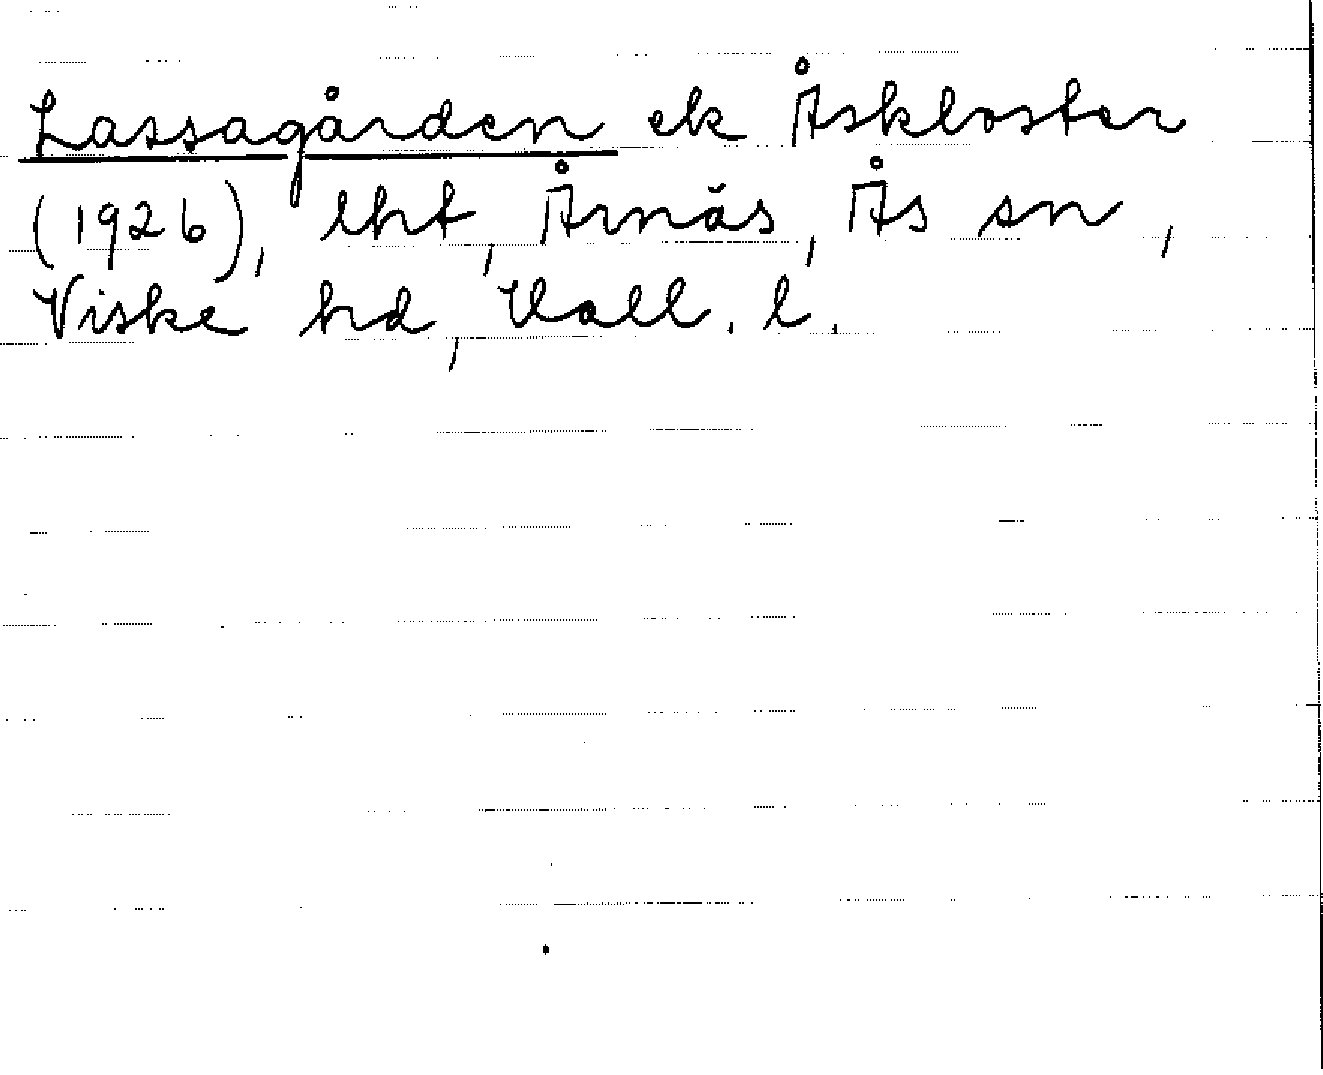 Lassagården ek Åskloster
(1926), lht, Årnäs, Ås sn,
Viske hd, Hall. l.